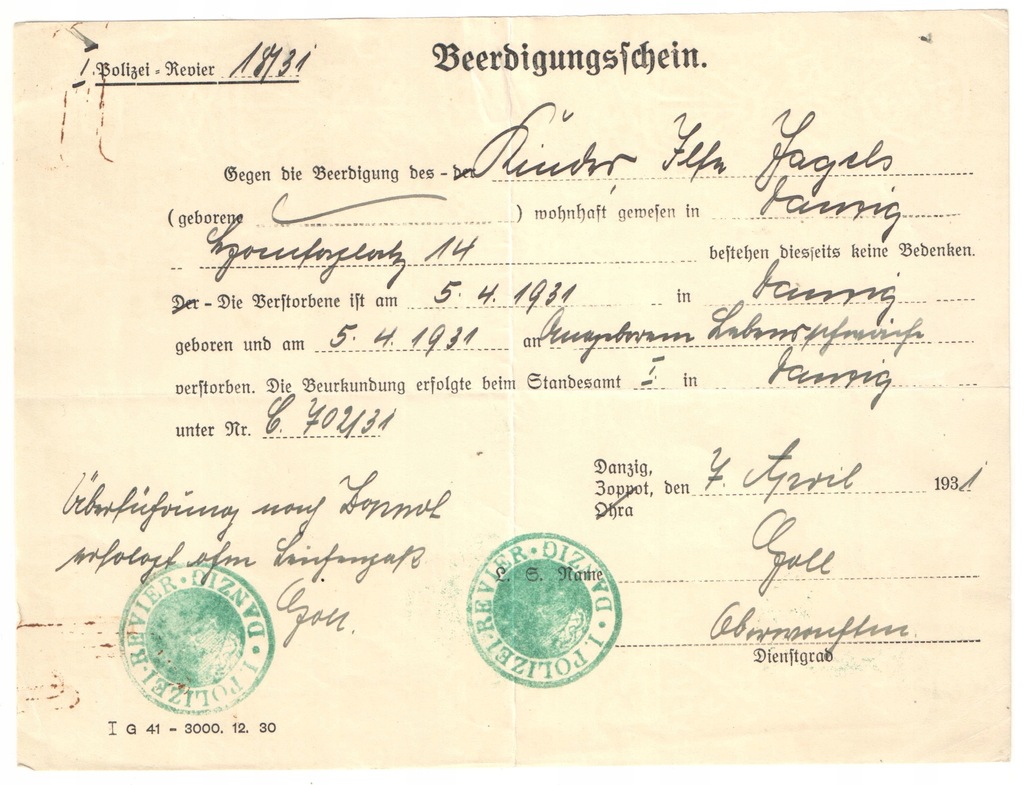 I. Polizei-Revier 18/31
Beerdigungsschein.
Gegen die Beerdigung des - der Kindes Ilse Jagels
(geborene ) wohnhaft gewesen in Danzig
14 bestehen diesseits keine Bedenken.
Der - Die Verstorbene ist am 5. 4. 1931 in Danzig
geboren und am 5. 4. 1931 an Angeborene Lebensschwäche
verstorben. Die Beurkundung erfolgte beim Standesamt I. in Danzig
unter Nr. C. 702/31
Danzig,
Zoppot, den 7. April 1931
Ohra
Überführung nach Zoppot
erfolgt ohne Leichenpaß
L. S. Name
Dienstgrad
I. POLIZEI-REVIER · DANZIG ·
I. POLIZEI-REVIER · DANZIG ·
I G 41 - 3000. 12. 30